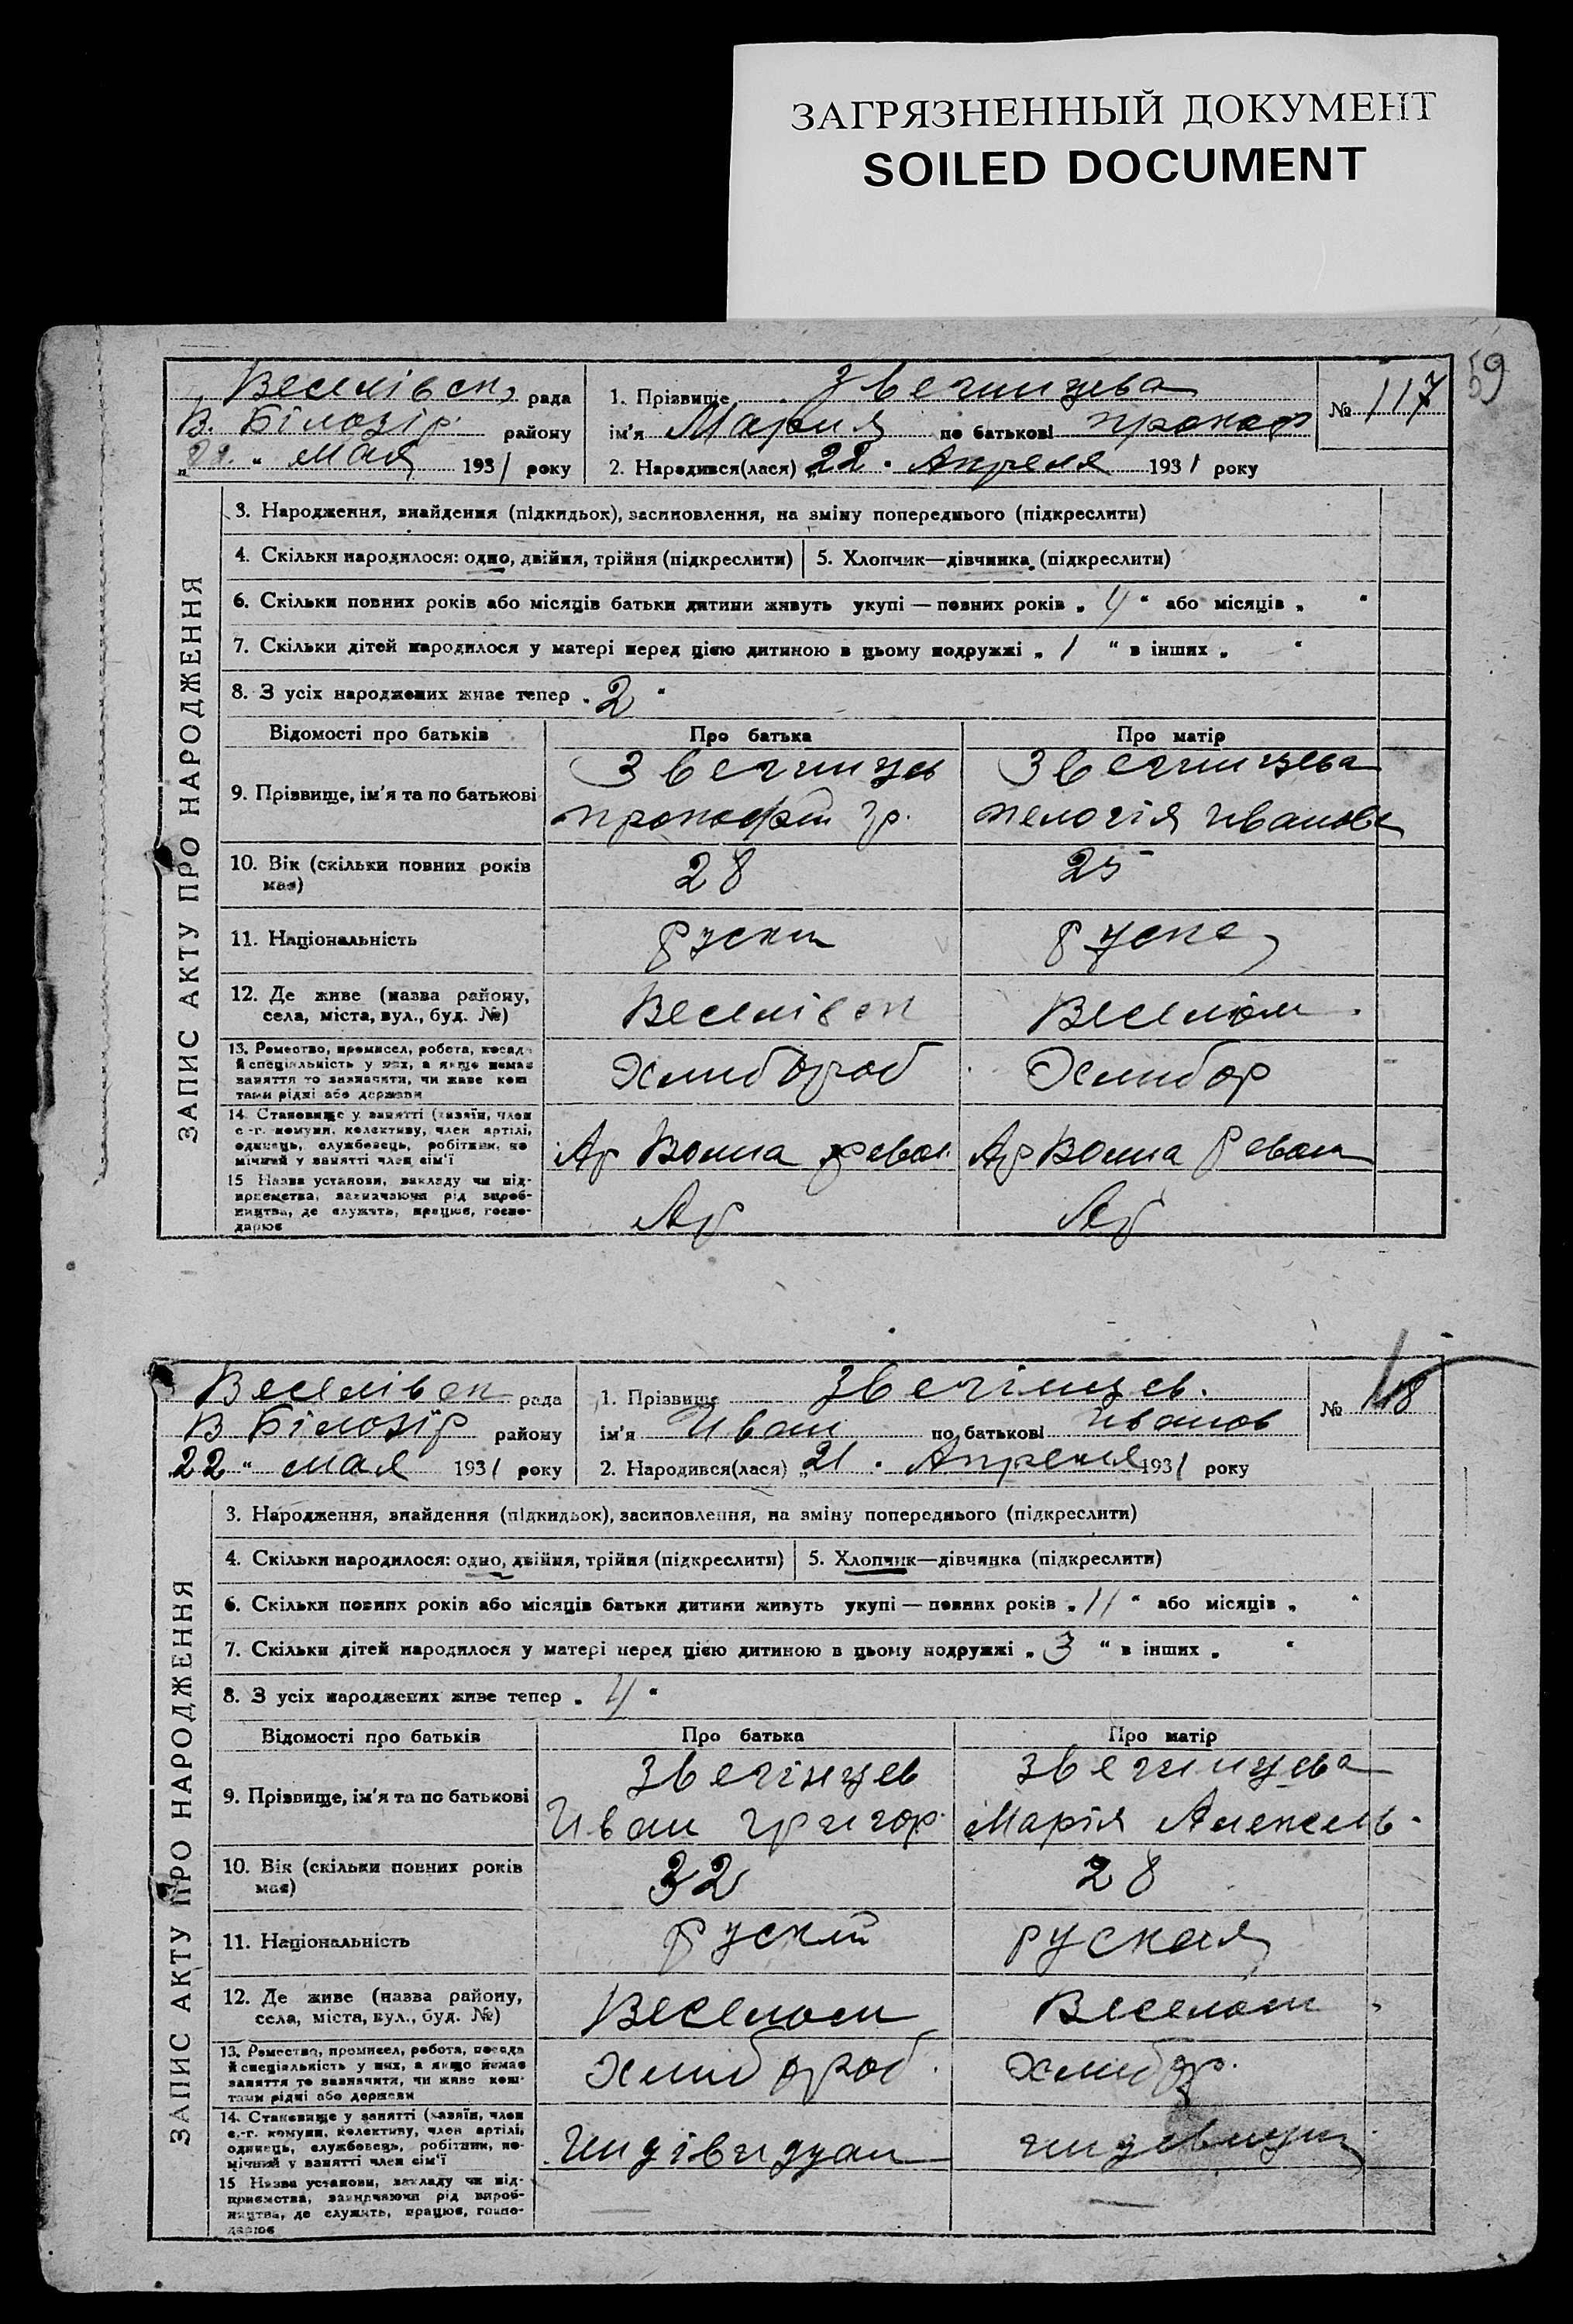 ЗАГРЯЗНЕННЫЙ ДОКУМЕНТ
SOILED DOCUMENT
59
Веселівск рада
В. Білозір. району
"22. " мая 1931 року
1. Прізвище Звегинцева
ім'я Мария по батькові Прокоф
2. Народився(лася) "22 " Апреля 1931 року
№ 117
ЗАПИС АКТУ ПРО НАРОДЖЕННЯ
3. Народження, знайдення (підкидьок), засиновлення, на зміну попереднього (підкреслити)
4. Скільки народилося: одно, двійня, трійня (підкреслити) 5. Хлопчик—дівчинка (підкреслити)
6. Скільки повних років або місяців батьки дитини живуть укупі — повних років „ 4 “ або місяців „ “
7. Скільки дітей народилося у матері перед цією дитиною в цьому подружжі „ 1 “ в інших „ “
8. З усіх народжених живе тепер „ 2 “
Відомості про батьків Про батька Про матір
9. Прізвище, ім'я та по батькові
Звегинцев
Прокофи Гр.
Звегинцева
Пелогія Иванов
10. Вік (скільки повних років має)
28 25
11. Національність
руски руска
12. Де живе (назва району, села, міста, вул., буд. №)
Веселівск Веселом
13. Ремество, промисел, робота, посада
й спеціальність у них, а якщо немає
заняття то зазначити, чи живе кош
тами рідні або держави
Хлибороб Хлибор
14. Становище у занятті (хазяїн, член
с.-г. комуни, колективу, член артілі,
одинець, службовець, робітник, по
мічний у занятті член сім'ї
Ар Волна револ Ар Волна револ
15 Назва установи, закладу чи під-
приємства, зазначаючи рід вироб-
ництва, де служить, працює, госпо-
дарює
Ар Ар
Веселівск рада
В Білозір району
"22 " мая 1931 року
1. Прізвище Звегінцев.
ім'я Иван по батькові Иванов
2. Народився(лася) "21 " Апреля 1931 року
№ 118
ЗАПИС АКТУ ПРО НАРОДЖЕННЯ
3. Народження, знайдення (підкидьок), засиновлення, на зміну попереднього (підкреслити)
4. Скільки народилося: одно, двійня, трійня (підкреслити) 5. Хлопчик—дівчинка (підкреслити)
6. Скільки повних років або місяців батьки дитини живуть укупі — повних років „ 11 “ або місяців „ “
7. Скільки дітей народилося у матері перед цією дитиною в цьому подружжі „ 3 “ в інших „ “
8. З усіх народжених живе тепер „ 4 “
Відомості про батьків Про батька Про матір
9. Прізвище, ім'я та по батькові
Звегінцев
Иван Григор.
Звегинцева
Марія Алексеев.
10. Вік (скільки повних років має)
32 28
11. Національність
руский руская
12. Де живе (назва району, села, міста, вул., буд. №)
Веселом Веселом
13. Ремество, промисел, робота, посада
й спеціальність у них, а якщо немає
заняття то зазначити, чи живе кош-
тами рідні або держави
Хлибороб. Хлибор.
14. Становище у занятті (хазяїн, член
с.-г. комуни, колективу, член артілі,
одинець, службовець, робітник, по-
мічний у занятті член сім'ї
Индівидуал
15 Назва установи, закладу чи під-
приємства, зазначаючи рід вироб-
ництва, де служить, працює, госпо-
дарює